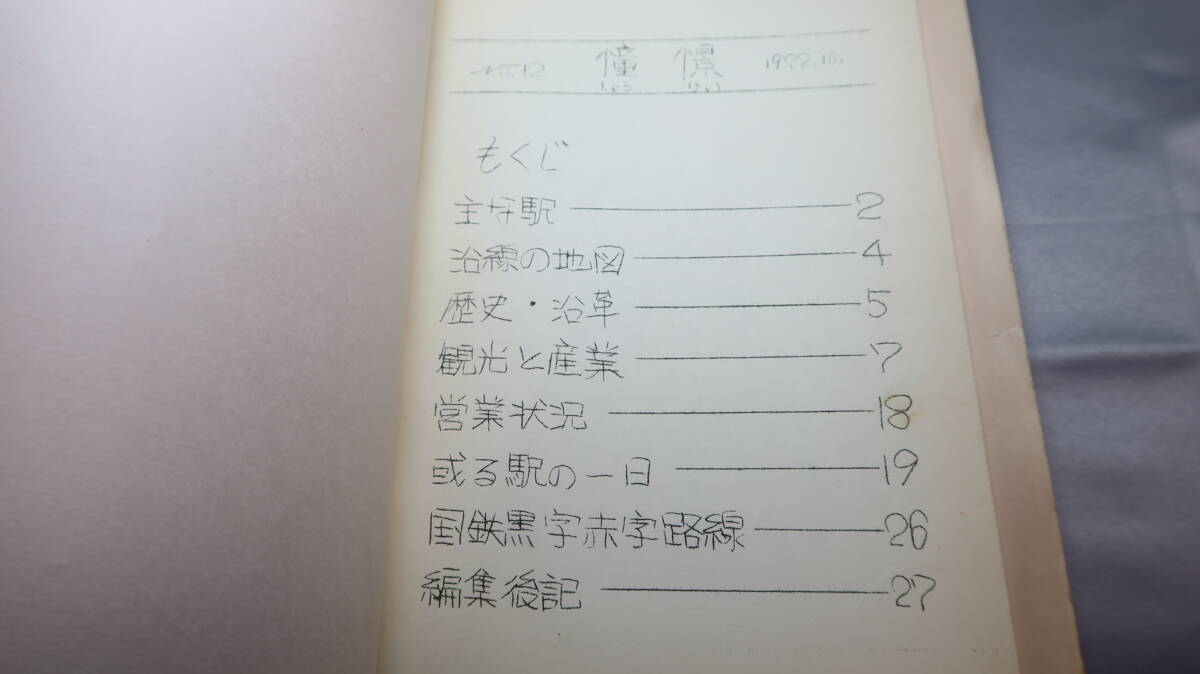 No.12 憧憬 1972.10.
しょう けい
もくじ
主な駅 ─── 2
沿線の地図 ─── 4
歴史・沿革 ─── 5
観光と産業 ─── 7
営業状況 ─── 18
或る駅の一日 ─── 19
国鉄黒字赤字路線 ─── 26
編集後記 ─── 27